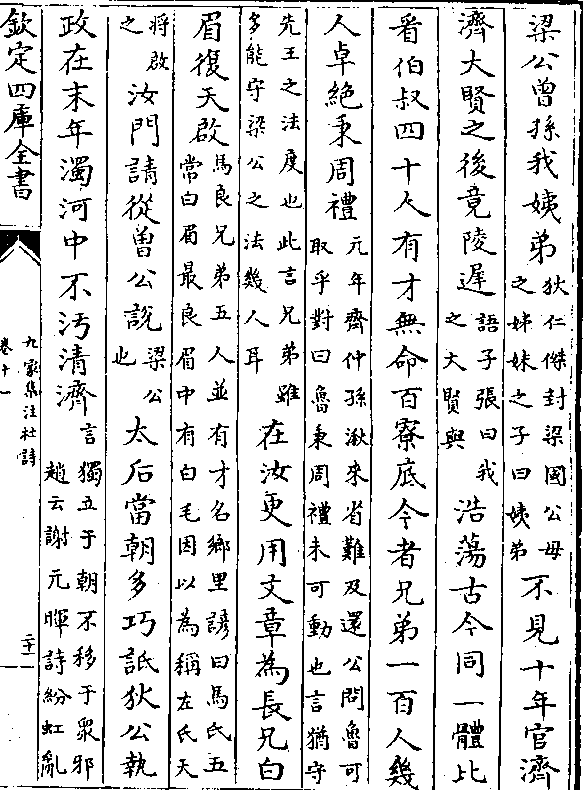 梁公曾孫我姨弟狄仁傑封梁國公母之姊妹之子曰姨弟不見十年官濟
濟大賢之後竟陵遲語子張曰我之大賢與浩蕩古今同一體比
看伯叔四十人有才無命百寮底今者兄弟一百人幾
人卓絶秉周禮元年齊仲孫湫來省難及還公問魯可取乎對曰魯秉周禮未可動也言猶守
先王之法度也此言兄弟雖多能守梁公之法幾人耳在汝更用文章為長兄白
眉復天啟馬良兄弟五人並有才名鄉里諺曰馬氏五常白眉最良眉中有白毛因以為稱左氏天
將啟之汝門請從曾公說梁公也太后當朝多巧詆狄公執
政在末年濁河中不汚清濟言獨立于朝不移于衆邪趙云謝元暉詩紛虹亂
欽定四庫全書
九家集注杜詩
卷十一
二十一